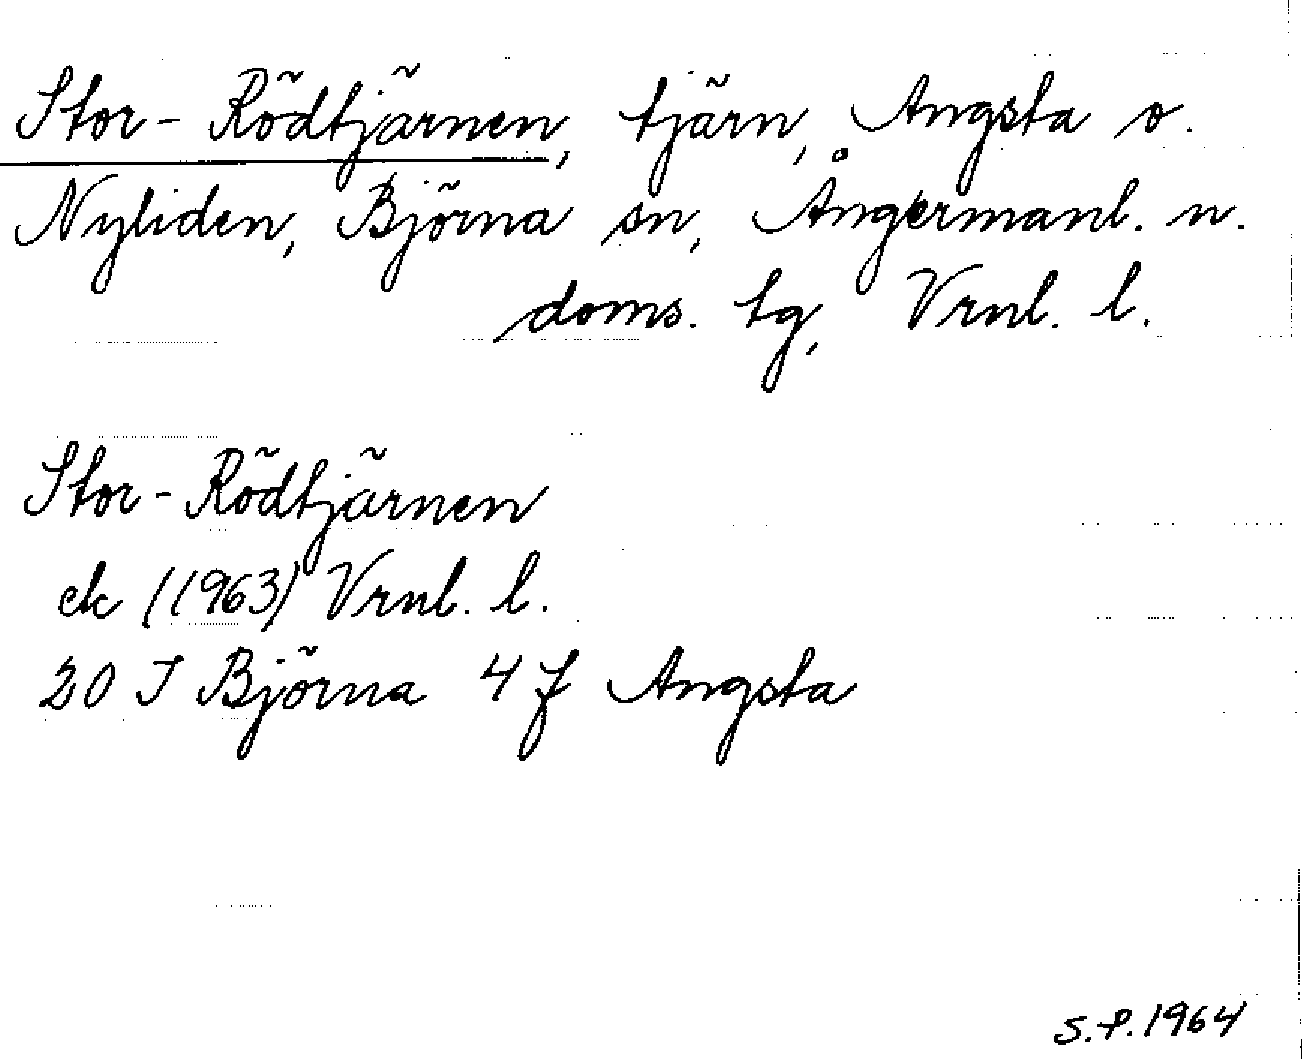 Stor-Rödtjärnen, tjärn, Angsta o.
Nyliden, Björna sn, Ångermanl. n.
doms. tg, Vrnl. l.
Stor-Rödtjärnen
ek (1963) Vrnl. l.
20 I Björna 4 f Angsta
S.P. 1964